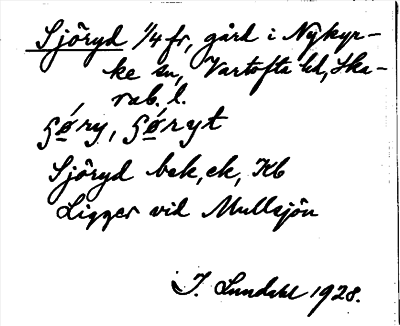 Sjöryd 1/4 fr, gård i Nykyr-
ke sn, Vartofta hd, Ska-
rab. l.
Sjöryd bek, ek, Kb
Ligger vid Mullsjön
I. Lundahl 1928.